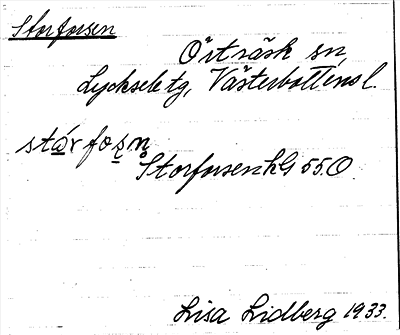 Storforsen
Örträsk sn,
Lycksele tg, Västerbottens l.
stárfoṣn̥
Storforsen hG 55.O.
Lisa Lidberg 1933.